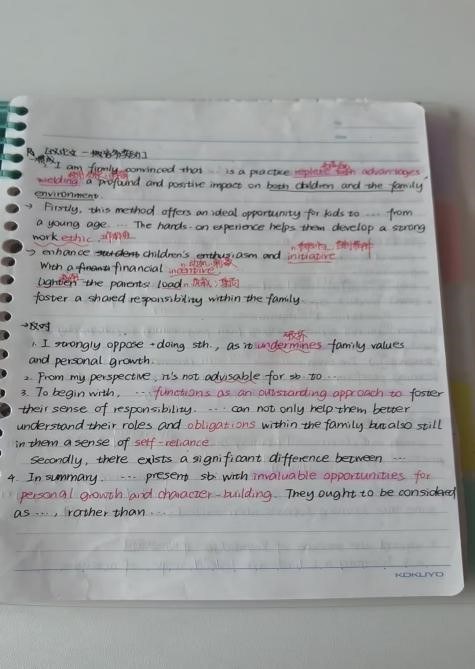 [议论文 —
→赞成
I am firmly convinced that … is a practice replete with advantages,
wielding a profound and positive impact on both children and the family
environment.
→ Firstly, this method offers an ideal opportunity for kids to … from
a young age. … The hands-on experience helps them develop a strong
work ethic.
→ enhance student children's enthusiasm and initiative.
With a financi financial incentive
n. 动机,刺激
Lighten the parents' load
foster a shared responsibility within the family.
→反对
破坏
1. I strongly oppose +doing sth., as it undermines family values
and personal growth.
2. From my perspective, it's not advisable for sb to …
3. To begin with, … functions as an outstanding approach to foster
their sense of responsibility. … can not only help them better
understand their roles and obligations within the family but also still
in them a sense of self-reliance
Secondly, there exists a significant difference between …
4. In summary. … present sb with invaluable opportunities for
personal growth and character-building. They ought to be considered
as …, rather than …
KOKUYO